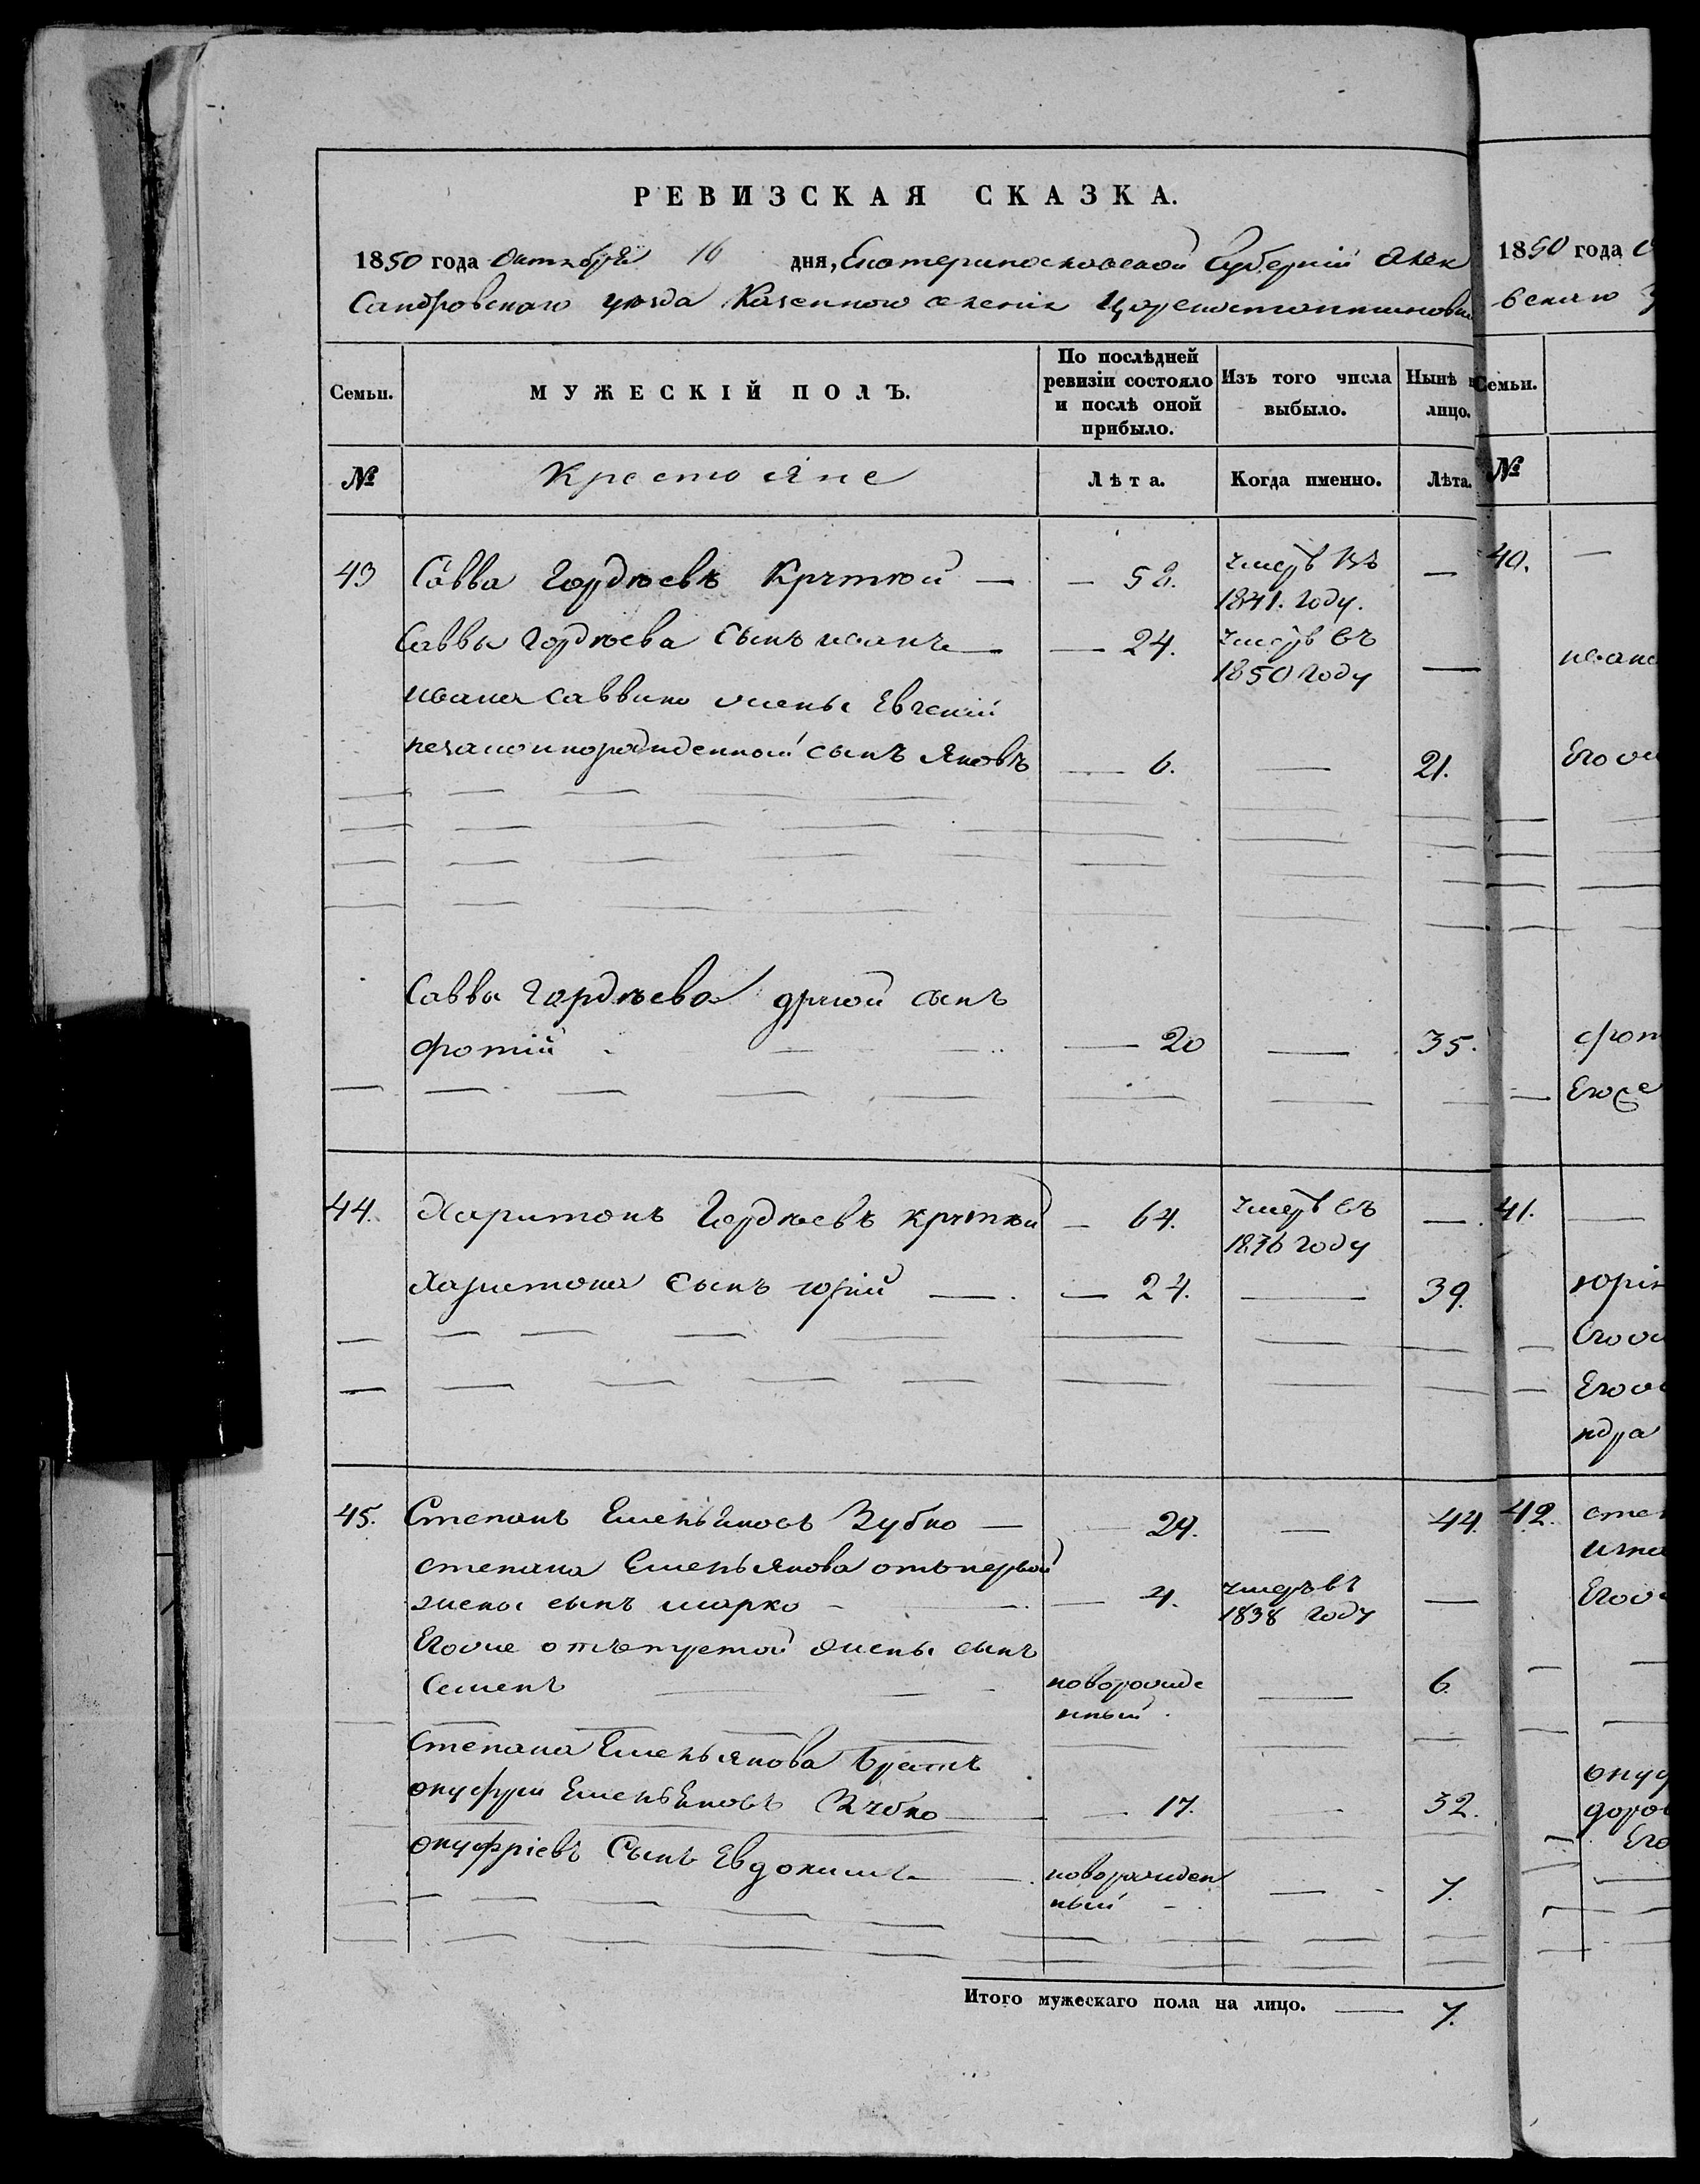 РЕВИЗСКАЯ СКАЗКА.
1850 года Октября 16 дня, Екатеринославской Губерніи Алек
сандровскаго уѣзда Казенного селенія Цареконстантиновки
Семьи.
МУЖЕСКІЙ ПОЛЪ.
По послѣдней ревизіи состояло и послѣ оной прибыло.
Изъ того числа выбыло.
Нынѣ
лицо.
№
Крестояне
Лѣта.
Когда именно.
Лѣта.
43 Савва Гордѣевъ Круткой — — 52. умеръ въ —
1841. году.
Саввы Гордѣева сынъ иванъ — — 24. умеръ въ
1850 году —
ивана саввина жены Евгеніи
незаконорожденной сынъ Яковъ — 6. — 21.
Саввы Гордѣева другой сынъ
фотій — 20 — 35.
44. Харитонъ Гордѣевъ круткой — 64. умеръ въ —
1836 году
Харитона сынъ юрій — — 24. — 39.
45. Степанъ Емельяновъ Зубко — 29. — 44.
степана Емельянова отъ первой
жены сынъ марко — 4. умеръ въ —
1838 году
Егоже отъ третой жены сынъ
Семенъ — новорожде — 6.
нный
Степана Емельянова братъ
онуфрій Емельяновъ Зубко — 17. — 32.
онуфріевъ Сынъ Евдокимъ — новорожден — 7.
ный
Итого мужескаго пола на лицо. — 7.
1850 года
вскаго
Семьи.
№
40. —
ивана
Егоже
фот
Его
41. —
юрія
Егоже
Егоже
ндра
42. степ
Егоже
онуф
Его